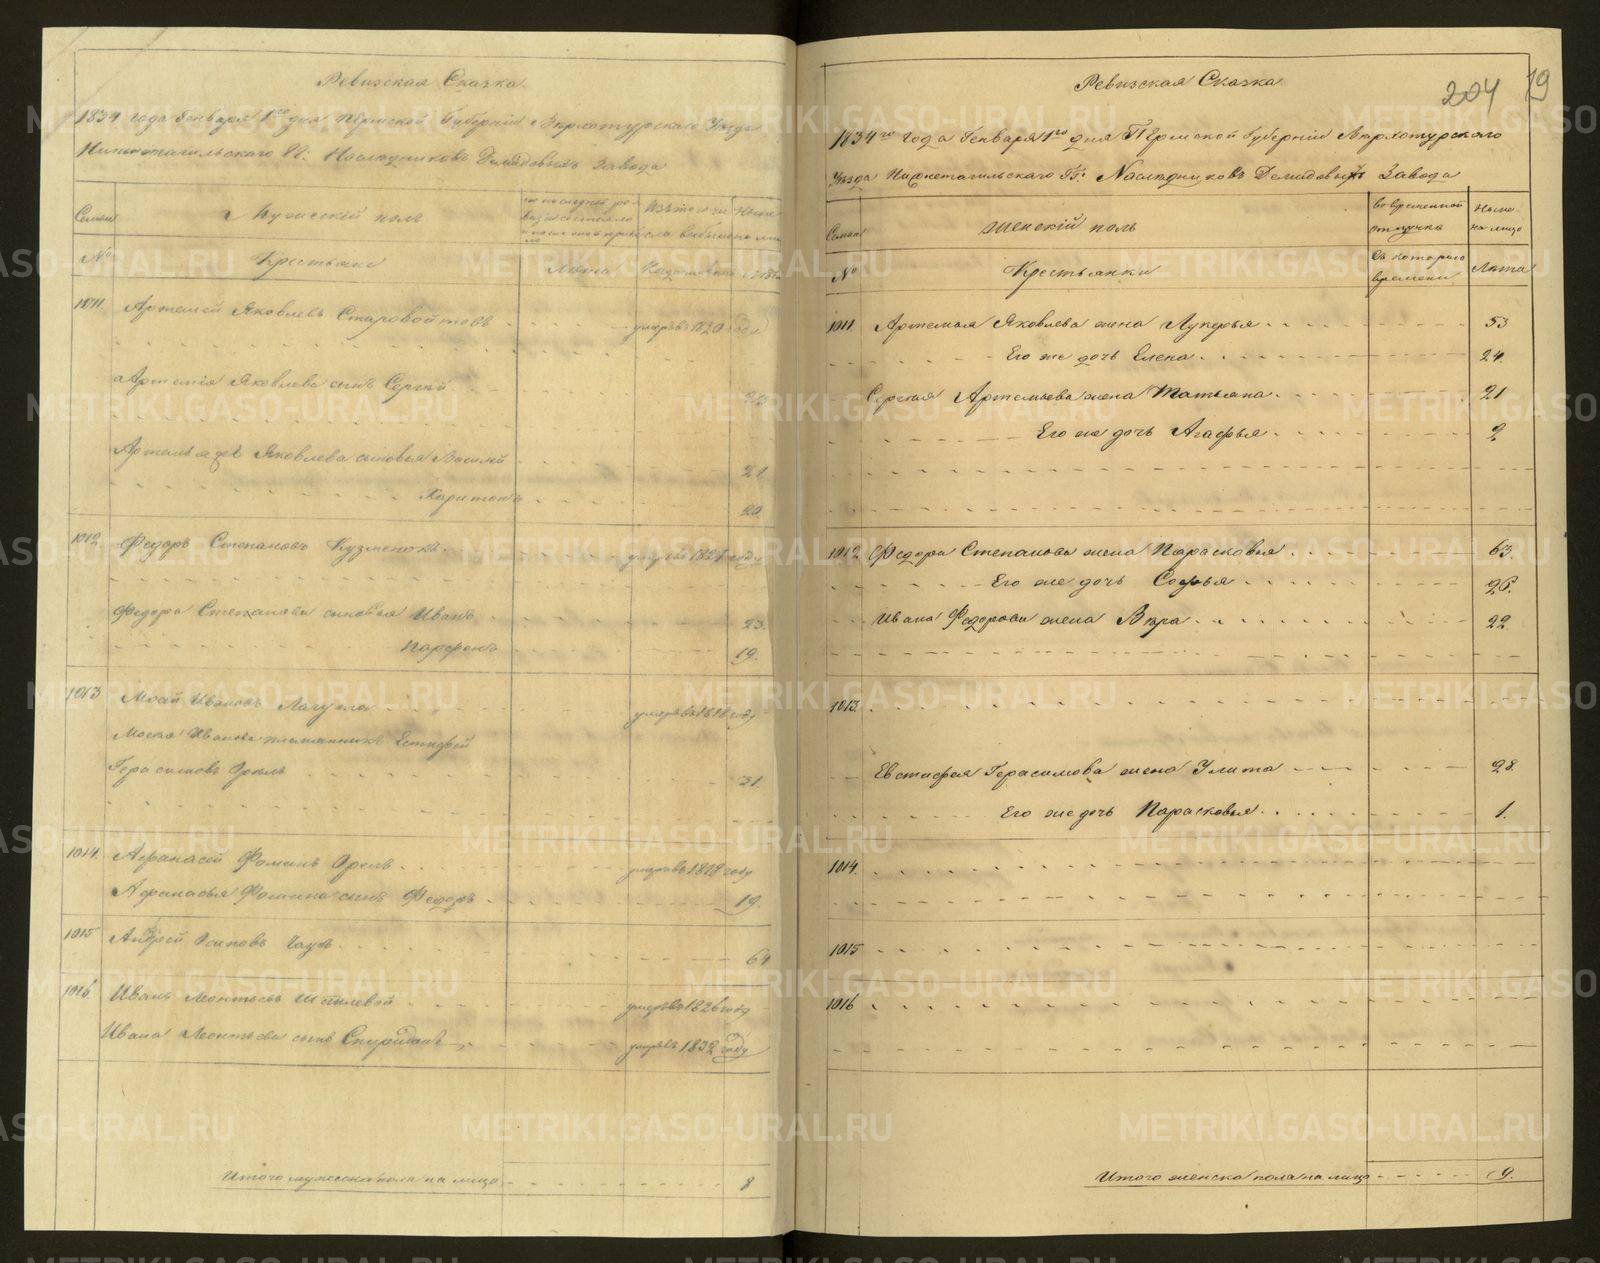 Ревизская Сказка
1834 года Генваря 1го дня Пермской Губернiи Верхотурскаго Уезда
Нижнетагильскаго Гг: Наследниковъ Демидовыхъ Завода
Семьи
Мужескiй полъ
Ныне
№
Крестьяне
Лета
1011. Артемей Яковлевъ Старовойтовъ умеръ въ 1830 году
Артемiя Яковлева сынъ Сергей
Яковлева сыновья Василей 21
Харитонъ 20
1012 Федоръ Степановъ Кузменокъ. году
Федора Степанова сыновья Иванъ 23.
Парфенъ 19.
1013 Мосей Ивановъ умеръ въ 1818 году
Мосея Иванова племянникъ Естифей
Герасимовъ Орелъ 31.
1014. Афанасей Фоминъ Орелъ. году
Афанасья Фомина сынъ Федоръ 19.
1015 Андрей Осиповъ 64
1016. Иванъ Леонтьевъ Шпилевой умеръ въ 1826 году
Ивана Леонтьева сынъ Спиридонъ умеръ въ 1832 году
Итого мужеска пола на лицо 8
204 19
Ревизская Сказка
1834го года Генваря 1го дня Пермской Губернiи Верхотурскаго
Уезда Нижнетагильскаго Гг: Наследниковъ Демидовыхъ Завода
Семьи
Женскiй полъ
Во временной отлучке
Ныне на лицо
№
Крестьянки
Съ котораго времени
Лета
1011. Артемья Яковлева жена Лукерья 53
Его же дочь Елена. 24.
Сергея Артемьева жена Татьяна. 21
Его же дочь Агафья. 2
1012 Федора Степанова жена Парасковья 63.
Его же дочь Софья 26.
Ивана Федорова жена Вера 22
1013.
Евстифея Герасимова жена Улита 28.
Его же дочь Парасковья. 1.
1014.
1015
1016
Итого женска пола на лицо 9.
METRIKI.GASO-URAL.RU